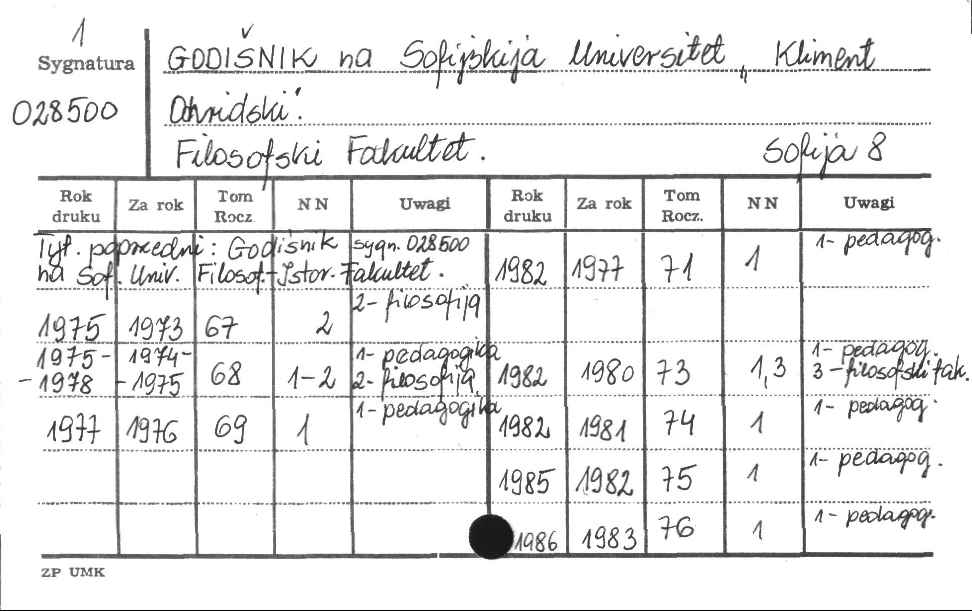 1
Sygnatura
028500
GODIŠNIK na Sofijskija Universitet „Kliment
Ohridski".
Filosofski Fakultet. Sofija 8
Rok druku Za rok Tom Rocz. NN Uwagi Rok druku Za rok Tom Rocz. NN Uwagi
Tyt. poprzedni: Godišnik sygn. 028500
na Sof. Univ. Filosof.-Istor. Fakultet.
1982 1977 71 1 1- pedagog.
1975 1973 67 2 2- filosofija
1975-1978 1974-1975 68 1-2 1- pedagogika 2- filosofija
1982 1980 73 1,3 1- pedagog. 3- filosofski fak.
1977 1976 69 1 1- pedagogika
1982 1981 74 1 1- pedagog.
1985 1982 75 1 1- pedagog.
1986 1983 76 1 1- pedagog.
ZP UMK